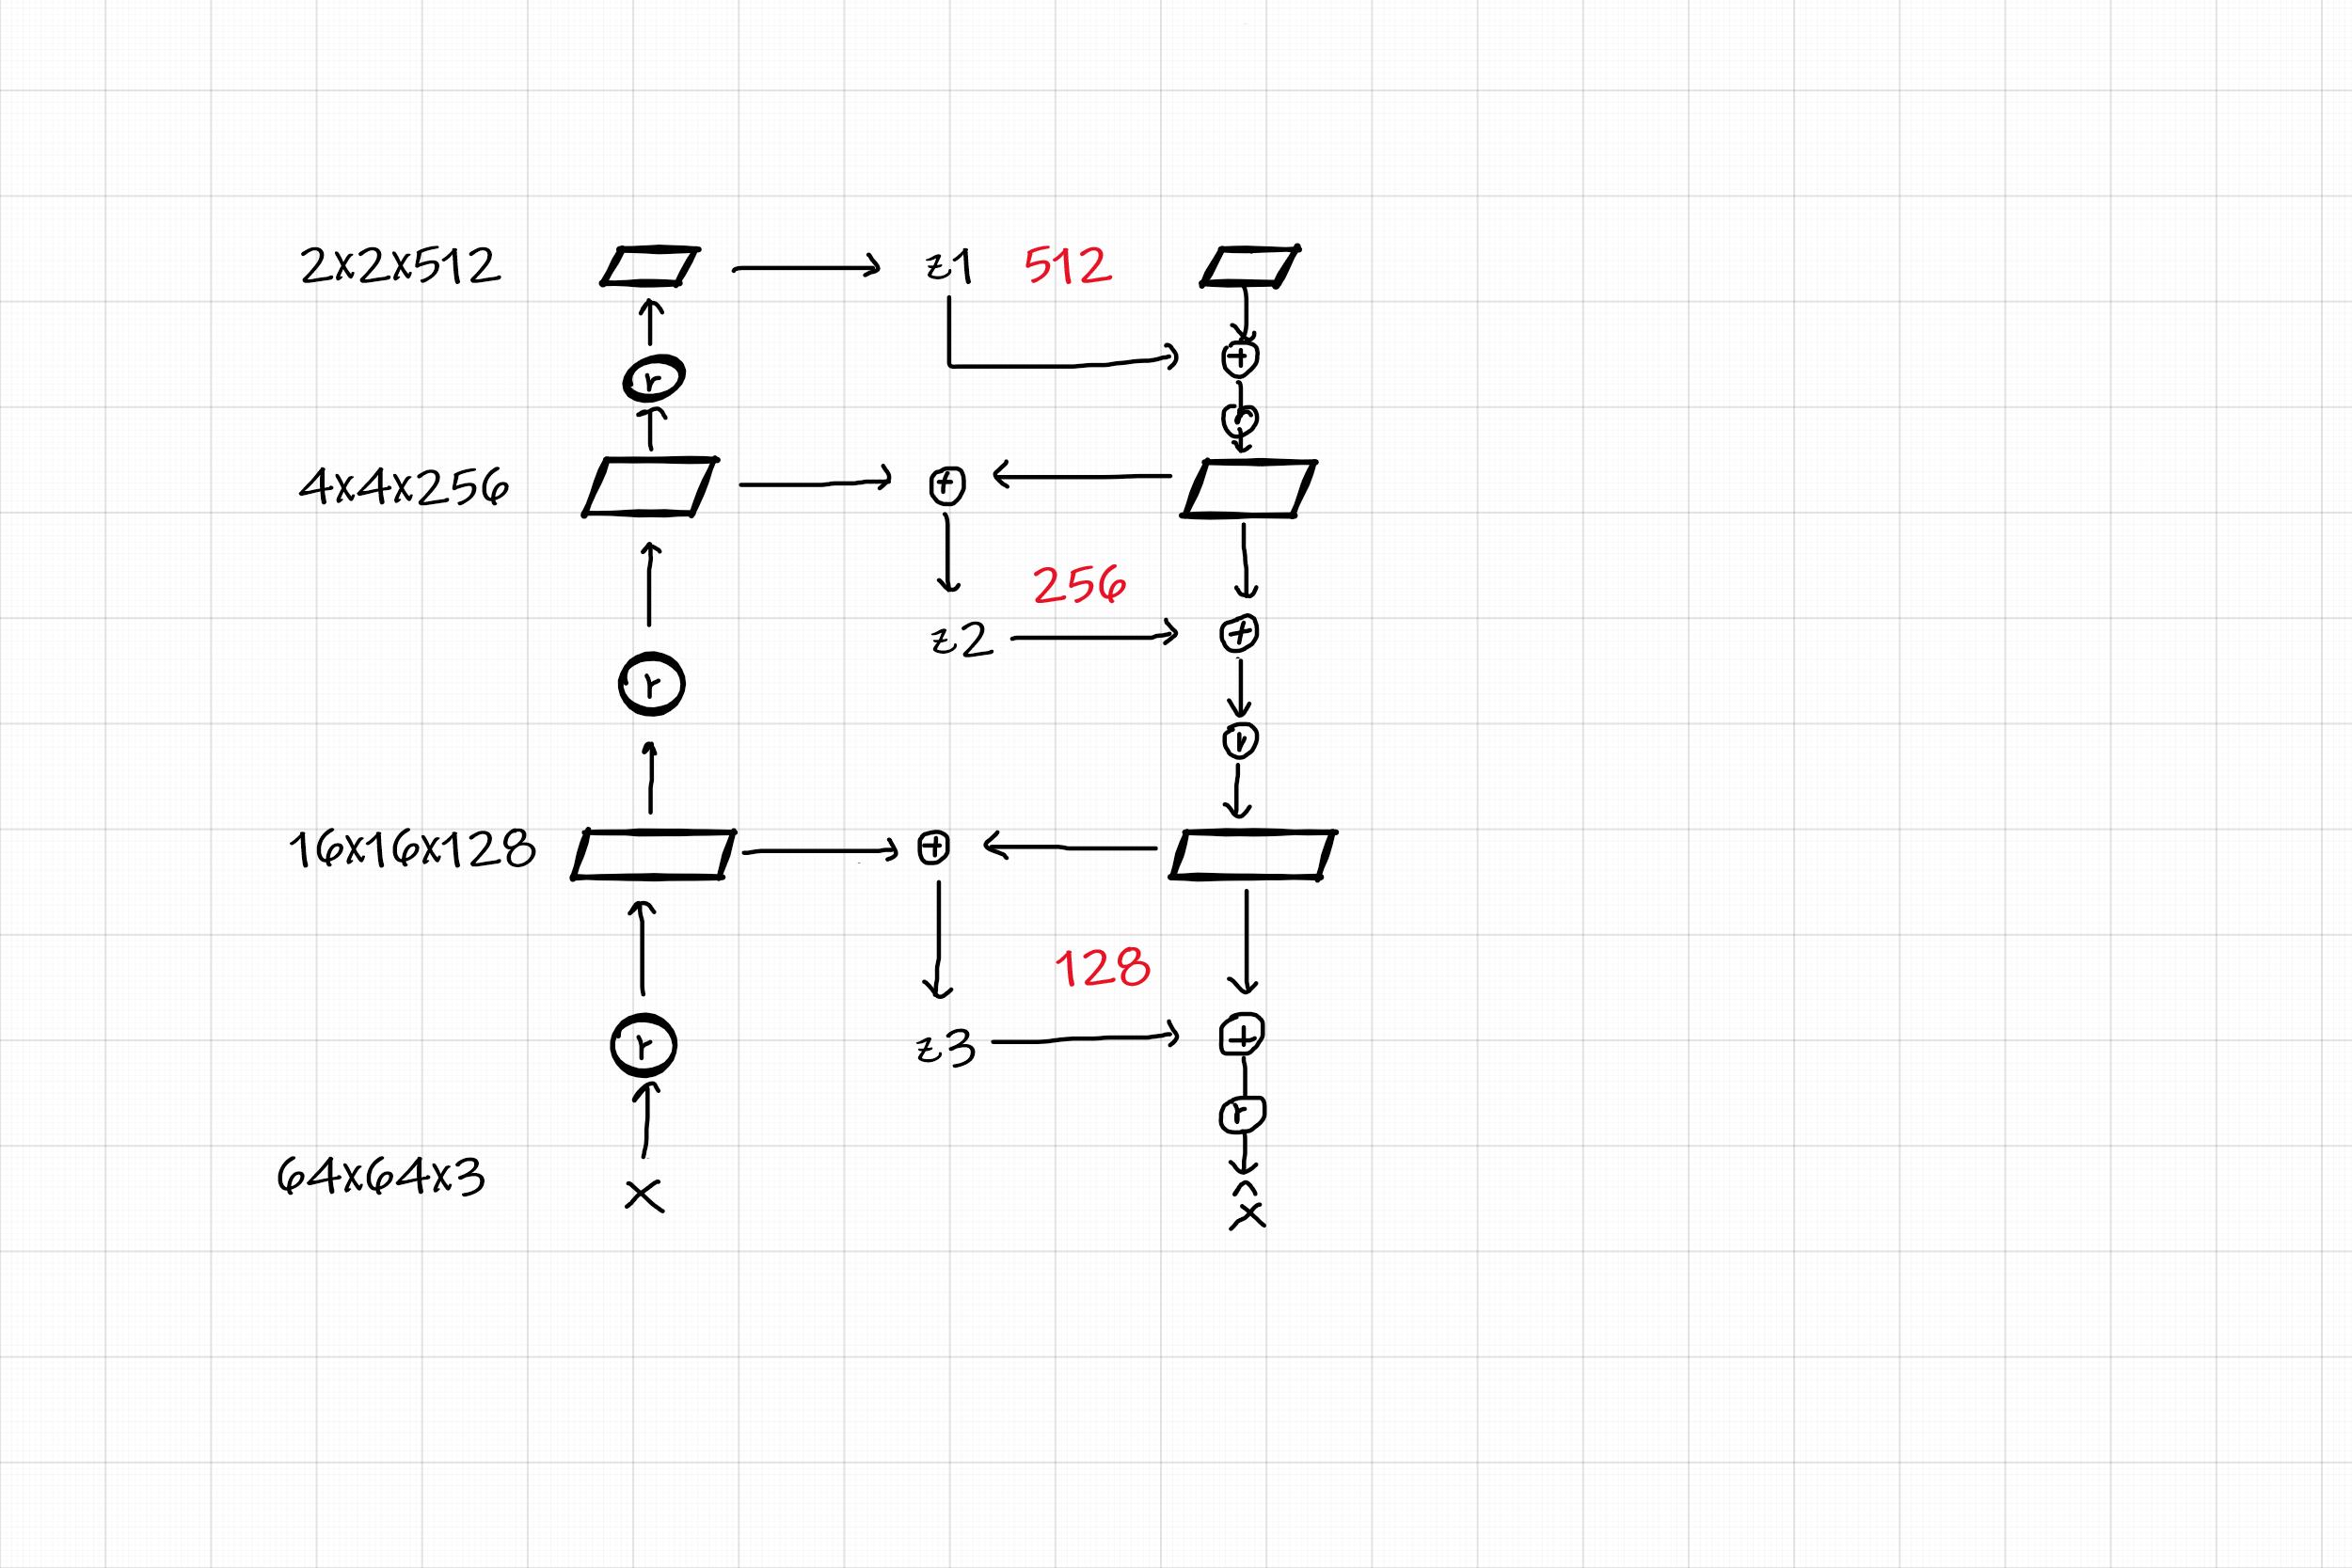 2x2x512 z1 512
+
r
r
4x4x256 +
256
z2 +
r
r
16x16x128 +
128
r z3 +
r
64x64x3 x x̂